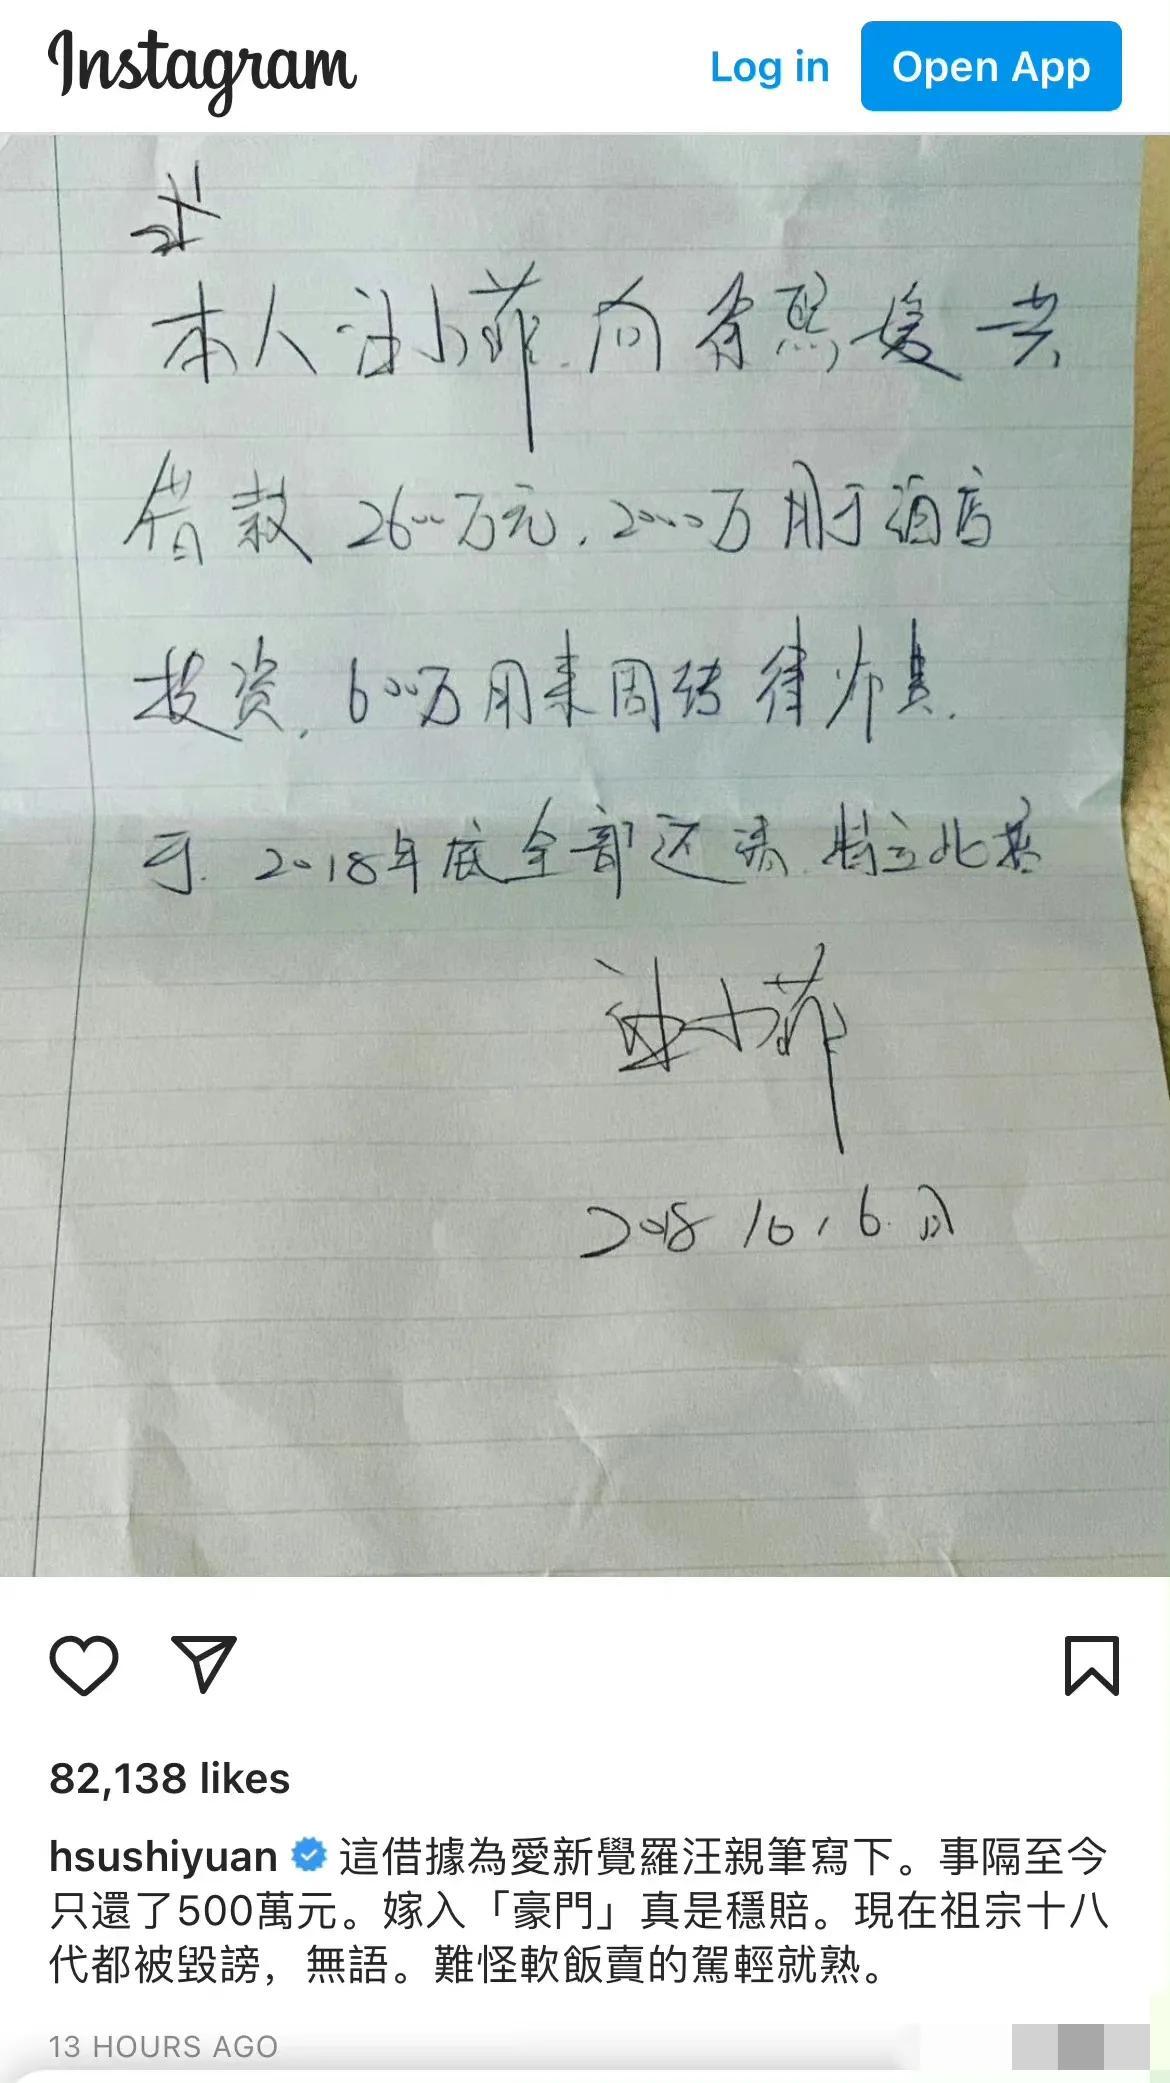 Instagram
Log in
Open App
本人汪小菲.向徐熙媛共
借款2600万元.2000万用于酒店
投资.600万用来周转律师费.
于.2018年底全部还清.特立此
汪小菲
82,138 likes
hsushiyuan 這借據為愛新覺羅汪親筆寫下。事隔至今
只還了500萬元。嫁入「豪門」真是穩賠。現在祖宗十八
代都被毀謗，無語。難怪軟飯賣的駕輕就熟。
13 HOURS AGO